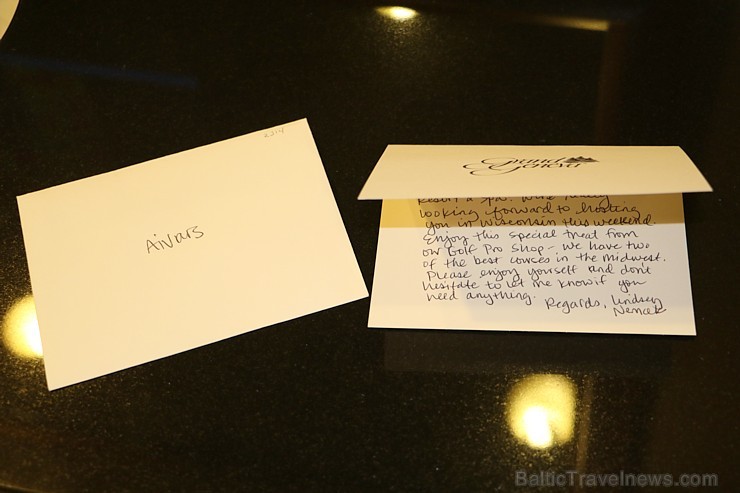 2314
Aivars
Grand
Geneva
Resort & Spa. We're really
looking forward to hosting
you in Wisconsin this weekend.
Enjoy this special treat from
our Golf Pro Shop - we have two
of the best courses in the midwest.
Please enjoy yourself and don't
hesitate to let me know if you
need anything.
Regards, Lindsey
Nemcek
BalticTravelnews.com